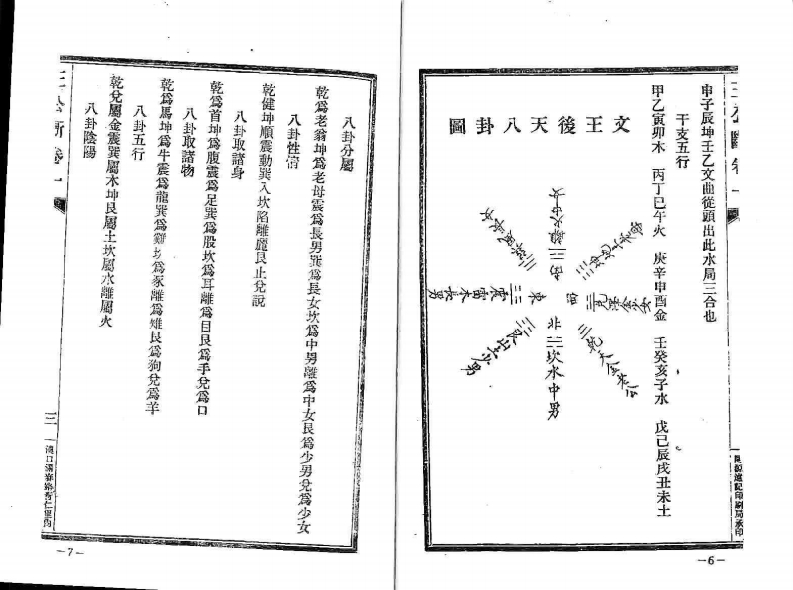 申子辰坤壬乙文曲從頭出此水局三合也
干支五行
甲乙寅卯木　丙丁巳午火　庚辛申酉金　壬癸亥子水　戊己辰戌丑未土
文王後天八卦圖
南三離火中女
東三震雷木長男
西三兌澤金少女
北三坎水中男
三乾天金老公
三艮山土少男
—6—
八卦分屬
乾為老翁坤為老母震為長男巽為長女坎為中男離為中女艮為少男兌為少女
八卦性情
乾健坤順震動巽入坎陷離麗艮止兌說
八卦取諸身
乾為首坤為腹震為足巽為股坎為耳離為目艮為手兌為口
八卦取諸物
乾為馬坤為牛震為龍巽為雞坎為豕離為雉艮為狗兌為羊
八卦五行
乾兌屬金震巽屬木坤艮屬土坎屬水離屬火
八卦陰陽
卷一
三
—7—